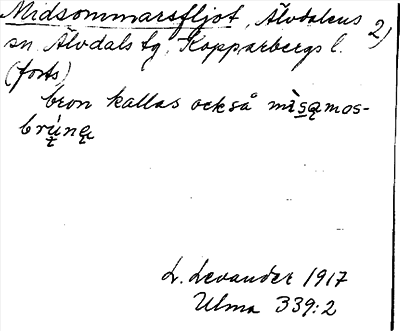 Midsommarsfljot, Älvdalens 2)
sn Älvdals tg. Kopparbergs l.
(forts)
bron kallas också mìsąmos-
brú̜ną
L. Levander 1917
Ulma 339:2